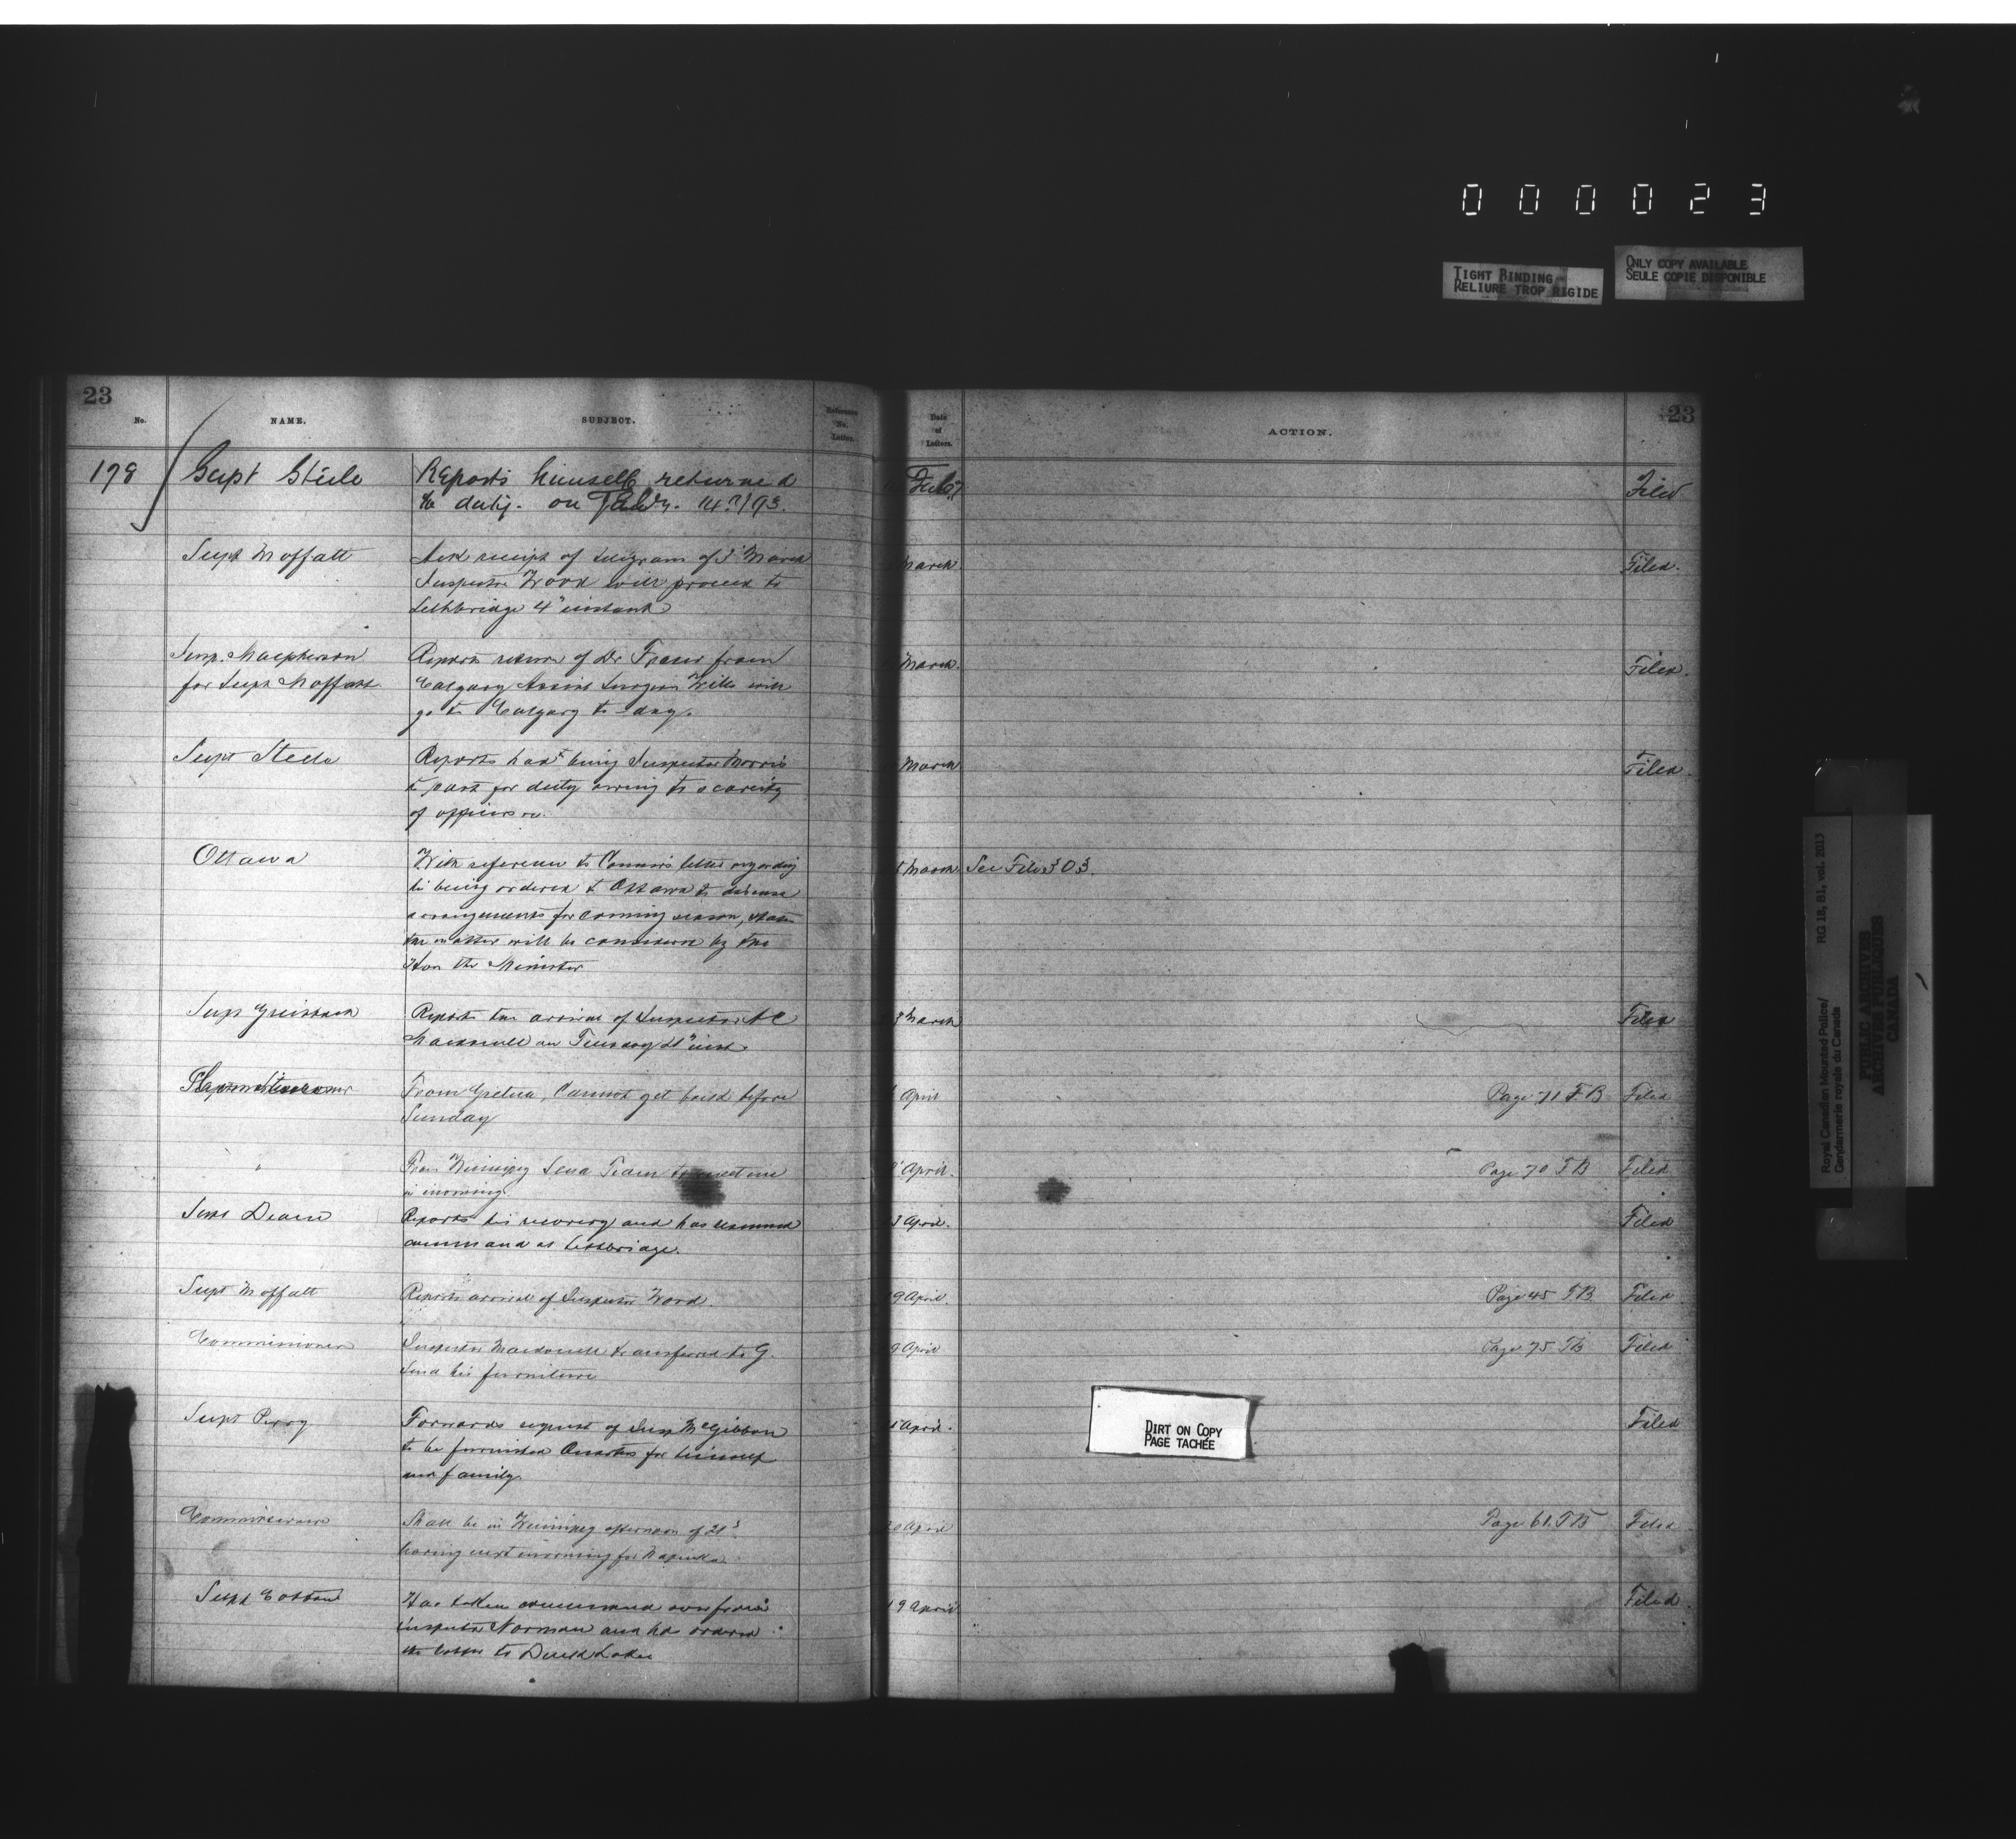 000023
TIGHT BINDING
RELIURE TROP RIGIDE
ONLY COPY AVAILABLE
SEULE COPIE DISPONIBLE
23
No.
NAME.
SUBJECT.
Reference
No.
Letter.
Date
of
Letters.
ACTION.
23
178
Supt Steele
Reports himself returned
to duty. on Feby. 14th/93.
Feb
Filed
Supt Moffatt
Ack receipt of telegram of 3" March
Inspector Wood will proceed to
Lethbridge 4" instant
March
Filed.
Insp. Macpherson
for Supt Moffatt
Reports return of Dr Fraser from
Calgary Assist Surgeon Wills will
go to Calgary to-day.
March.
Filed.
Supt Steele
Reports having Inspector Morris
to post for duty owing to scarcity
of officers
March
Filed.
Ottawa
With reference to Commrs letter regarding
his being ordered to Ottawa to discuss
arrangements for coming season, states
the matter will be considered by the
Hon the Minister
March
See File 303.
Supt Griesbach
Reports the arrival of Inspector A C
Macdonell on Tuesday 21" inst.
March
Filed
From Gretna, Cannot get build before
Sunday
April
Page 71 T B
Filed
"
From Winnipeg Send Team to meet me
in morning
April.
Page 70 T B
Filed
Supt Deane
Reports his recovery and has resumed
command at Lethbridge.
April.
Filed
Supt Moffatt
Reports arrival of Inspector Wood.
9 April.
Page 45 T B.
Filed
Commissioner
Inspector Macdonell transferred to G.
Send his furniture
9 April
Page 75 T B
Filed
Supt Perry
Forwards request of Insp McGibbon
to be furnished Quarters for himself
and family.
April.
Filed
Commissioner
Shall be in Winnipeg afternoon of 21st
leaving next morning for Napinka.
20 April
Page 61. T B
Filed
Supt Cotton
Has taken command over from
Inspector Norman and has ordered
the latter to Duck Lake
19 April
Filed.
DIRT ON COPY
PAGE TACHÉE
Royal Canadian Mounted Police/
Gendarmerie royale du Canada
RG 18, B1, vol. 2013
PUBLIC ARCHIVES
ARCHIVES PUBLIQUES
CANADA